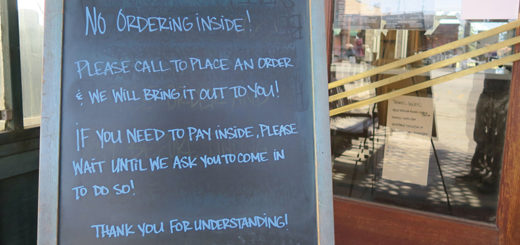 No Ordering inside!
Please call to place an order
& we will bring it out to you!
If you need to pay inside, please
wait until we ask you to come in
to do so!
Thank you for understanding!